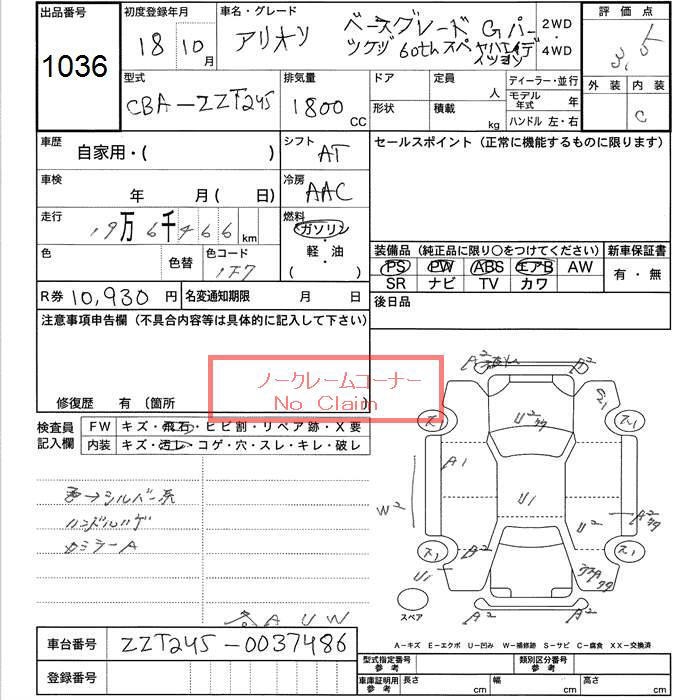 出品番号 初度登録年月 車名・グレード 評価点
1036
18 10月
アリオン ベースグレード Gパッケージ 60th スペシャルエディション
2WD ・ 4WD
3.5
型式 排気量 ドア 定員 人 ディーラー・並行 外装 内装
CBA-ZZT245 1800 CC
形状 積載 kg モデル年式 年
ハンドル 左・右
C
車歴 自家用・( ) シフト AT セールスポイント(正常に機能するものに限ります)
車検 年 月( 日) 冷房 AAC
走行 19万6千466 km 燃料 ガソリン ・ 軽・油 ( )
色 色替 色コード 1F7
装備品(純正品に限り○をつけてください) 新車保証書
PS PW ABS エアB AW 有・無
SR ナビ TV カワ
R券 10,930 円 名変通知期限 月 日 後日品
注意事項申告欄(不具合内容等は具体的に記入して下さい)
ノークレームコーナー
No Claim
修復歴 有 〔箇所
検査員記入欄 FW キズ・飛石・ヒビ割・リペア跡・X要
内装 キズ・汚レ・コゲ・穴・スレ・キレ・破レ
色→シルバー系
ハンドルハゲ
ミラーA
A U W
A2 A2
ス1 U2 ス1
A1
W2 U1 U2 A2
ス1 B2 ス1
U1
A2 A2
スペア
A-キズ E-エクボ U-凹み W-補修跡 S-サビ C-腐食 XX-交換済
車台番号 ZZT245-0037486
登録番号
型式指定番号 参考 類別区分番号 参考
車庫証明用 参考 長さ cm 幅 cm 高さ cm